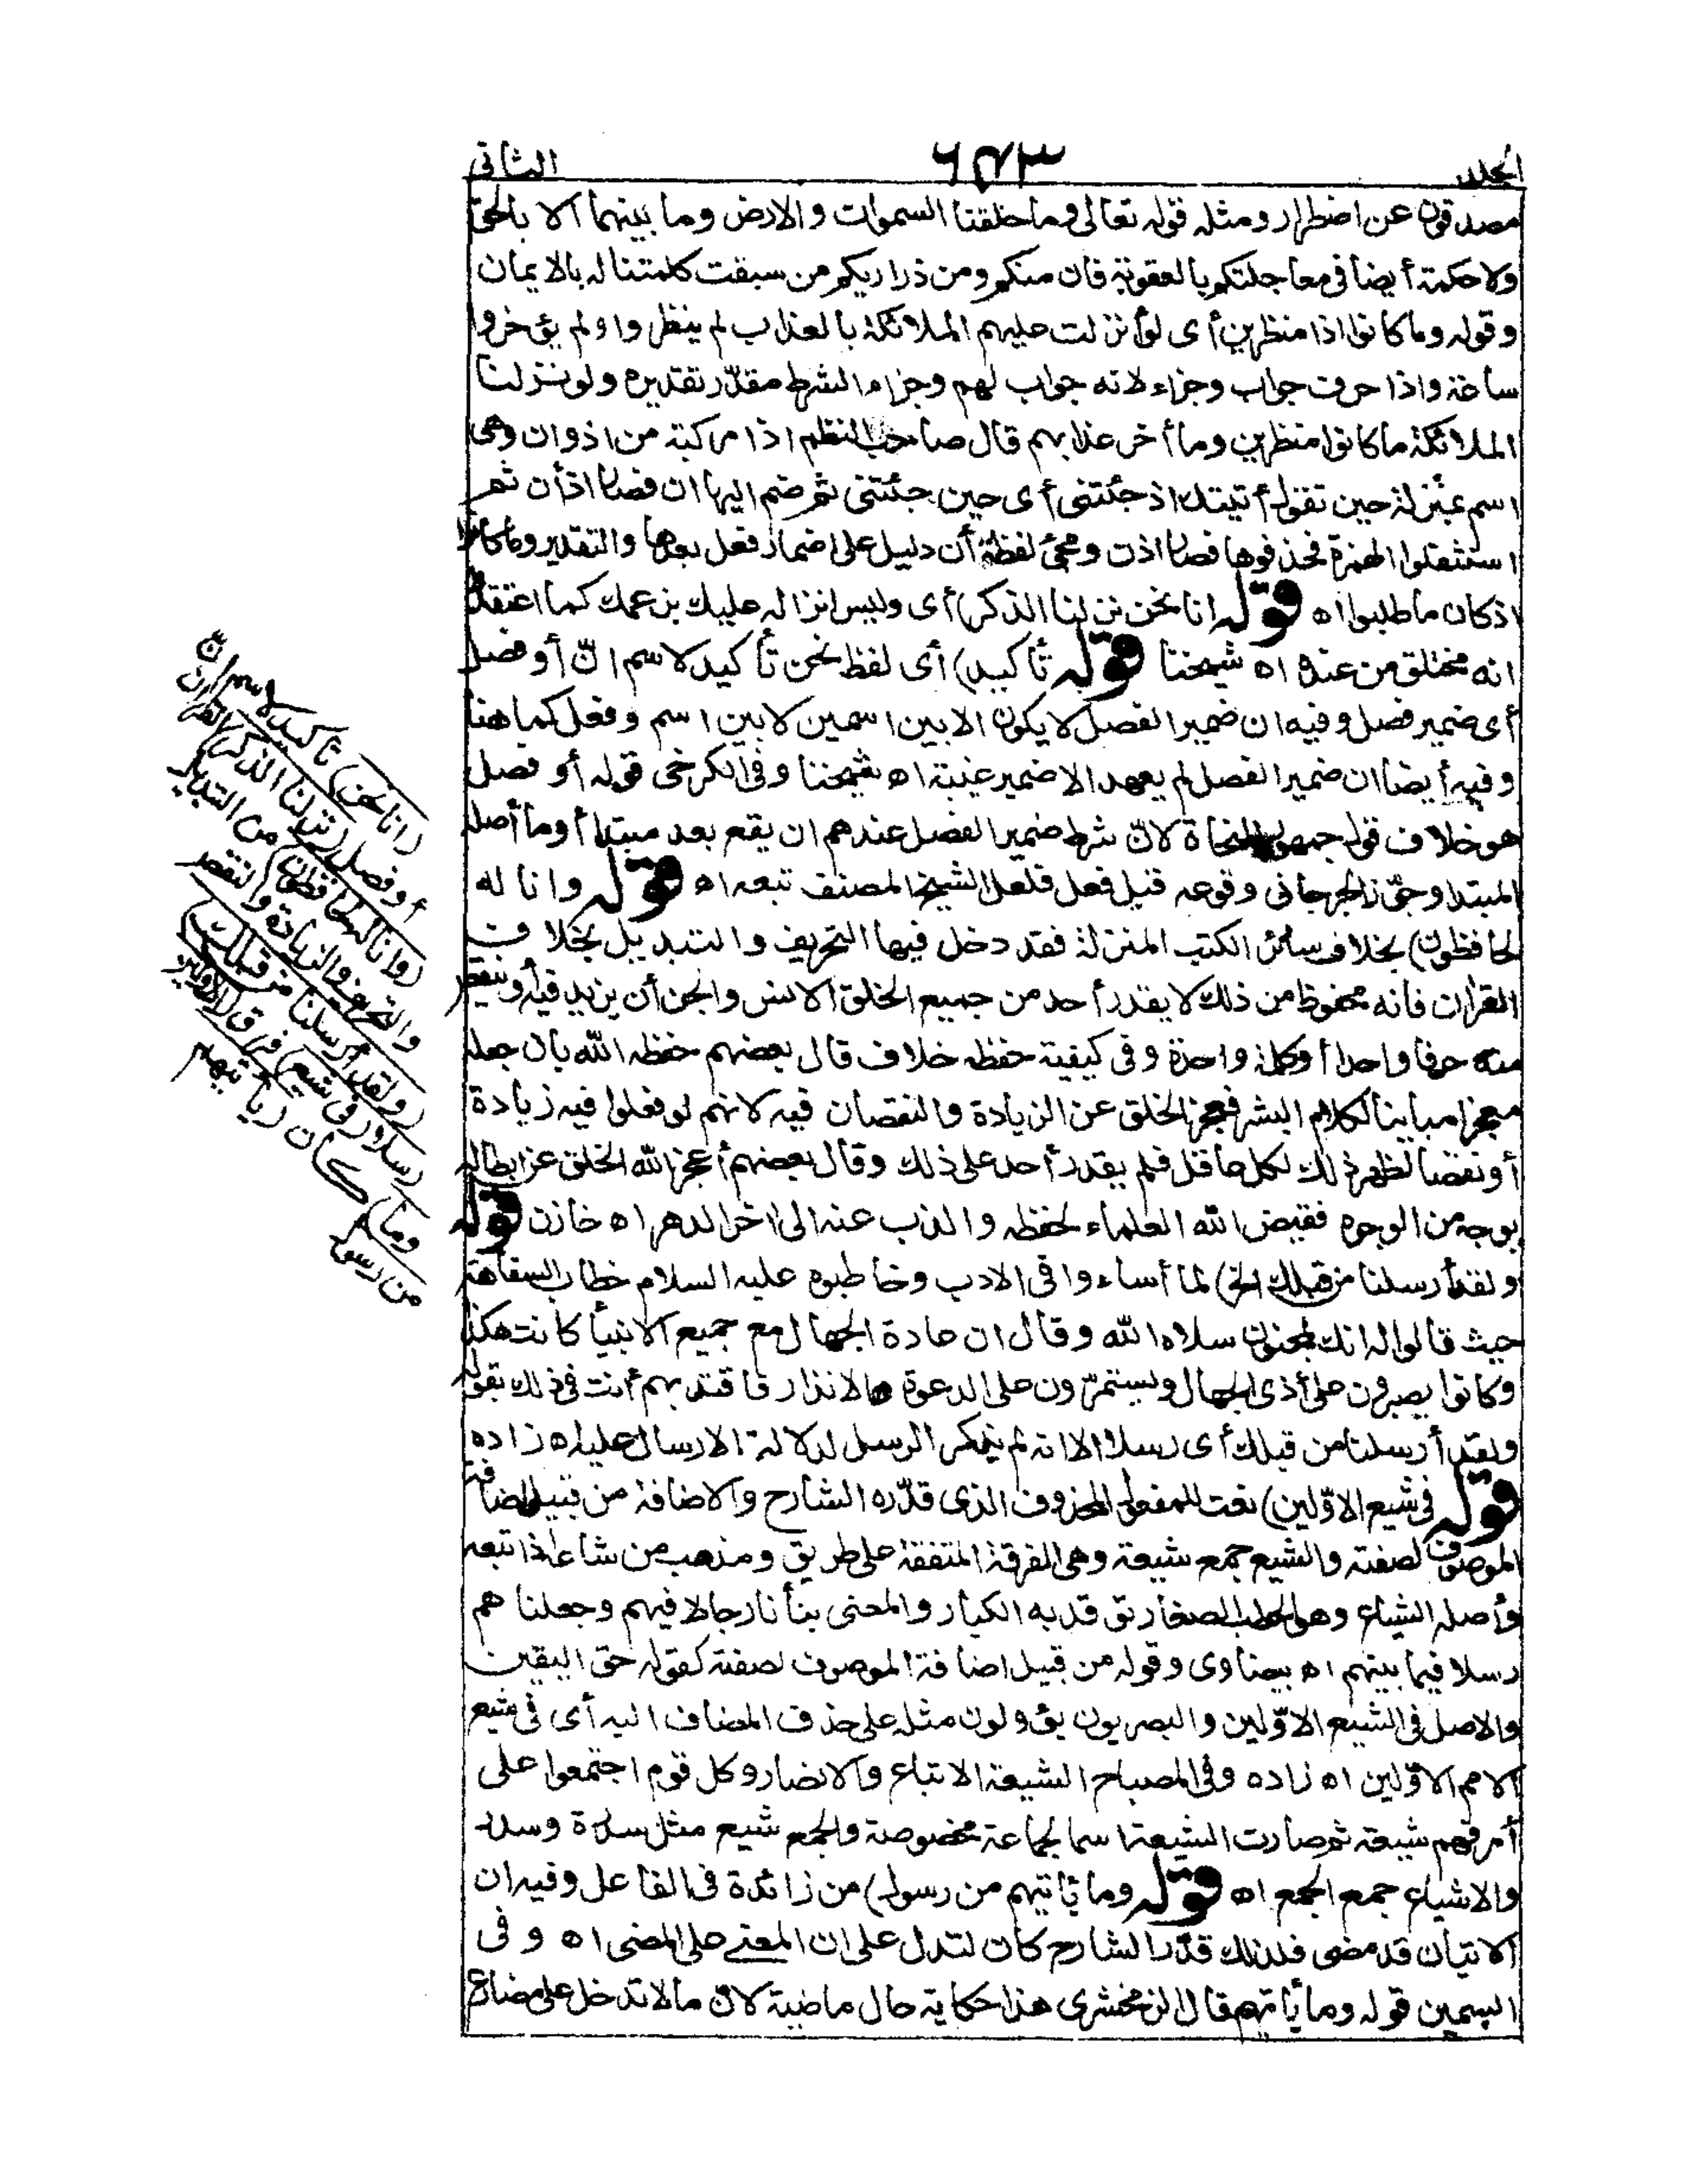 المجلد ٦٤٣ الثانى
مصدقون عن اضطرار ومثله قوله تعالى وما خلقنا السموات والارض وما بينهما الا بالحق
ولا حكمة أيضا فى معاجلتكم بالعقوبة فان منكم ومن ذراريكم من سبقت كلمتنا له بالايمان
وقوله وما كانوا اذا منظرين أى لو نزلت عليهم الملائكة بالعذاب لم ينظروا ولم يؤخروا
ساعة واذا حرف جواب وجزاء لانه جواب لهم وجزاء الشرط مقدّر تقديره ولو نزلنا
الملائكة ما كانوا منظرين وما أخر عذابهم قال صاحب النظم اذا مركبة من اذ وان وهى
اسم بمنزلة حين تقول أتيتك اذ جئتنى أى حين جئتنى ثم ضم اليها ان فصار اذ أن ثم
استثقلوا الهمزة فحذفوها فصار اذن ومجئ لفظة أن دليل على اضمار فعل بعدها والتقدير وما كانوا
اذ كان ما طلبوا اه قوله انا نحن نزلنا الذكر) أى وليس انزاله عليك بزعمك كما اعتقدوا
انه مختلق من عندك اه شيخنا قوله تأكيد) أى لفظ نحن تأكيد لاسم انّ أو فصل
أى ضمير فصل وفيه ان ضمير الفصل لا يكون الا بين اسمين لا بين اسم وفعل كما هنا
وفيه أيضا ان ضمير الفصل لم يعهد الا ضمير غيبة اه شيخنا وفى الكرخى قوله أو فصل
هو خلاف قول جمهور النحاة لانّ شرط ضمير الفصل عندهم ان يقع بعد مبتدا أو ما أصله
المبتدا وجوّز الجرجانى وقوعه قبل فعل فلعل الشيخ المصنف تبعه اه قوله وانا له
لحافظون) بخلاف سائر الكتب المنزلة فقد دخل فيها التحريف والتبديل بخلاف
القرآن فانه محفوظ من ذلك لا يقدر أحد من جميع الخلق الانس والجن أن يزيد فيه أو ينقص
منه حرفا واحدا أو كلمة واحدة وفى كيفية حفظه خلاف قال بعضهم حفظه الله بان جعله
معجزا مباينا لكلام البشر فعجز الخلق عن الزيادة والنقصان فيه لانهم لو فعلوا فيه زيادة
أو نقصا لظهر ذلك لكل عاقل فلم يقدر أحد على ذلك وقال بعضهم أعجز الله الخلق عن ابطاله
بوجه من الوجوه فقيض الله العلماء لحفظه والذب عنه الى اخر الدهر اه خازن قوله
ولقد أرسلنا من قبلك الخ) لما أساءوا فى الادب وخاطبوه عليه السلام خطاب السفاهة
حيث قالوا له انك لمجنون سلاه الله وقال ان عادة الجهال مع جميع الانبيأ كانت هكذا
وكانوا يصبرون على أذى الجهال ويستمرّون على الدعوة والانذار فاقتد بهم أنت فى ذلك بقوله
ولقد أرسلنا من قبلك أى رسلا الا انه لم يذكر الرسل لدلالة الارسال عليه اه زاده
قوله فى شيع الاوّلين) نعت للمفعول المحذوف الذى قدّره الشارح والاضافة من قبيل اضافة
الموصوف لصفته والشيع جمع شيعة وهى الفرقة المتفقة على طريق ومذهب من شاعه اذا تبعه
وأصله الشياع وهو الحطب الصغار توقد به الكبار والمعنى نبأنا رجالا فيهم وجعلنا هم
رسلا فيما بينهم اه بيضاوى وقوله من قبيل اضافة الموصوف لصفته كقوله حق اليقين
والاصل فى الشيع الاوّلين والبصريون يؤولون مثله على حذف المضاف اليه أى فى شيع
الامم الاوّلين اه زاده وفى المصباح الشيعة الاتباع والانصار وكل قوم اجتمعوا على
أمر فهم شيعة ثم صارت الشيعة اسما لجماعة مخصوصة والجمع شيع مثل سدرة وسدر
والاشياع جمع الجمع اه قوله وما يأتيهم من رسول) من زائدة فى الفاعل وفيه ان
الاتيان قد مضى فلذلك قدّر الشارح كان لتدل على ان المعنى على المضى اه وفى
السمين قوله وما يأتيهم قال الزمخشرى هذا حكاية حال ماضية لانّ ما لا تدخل على مضارع
(انا نحن) تأكيد لاسم انّ
أو فصل (نزلنا الذكر) القران
(وانا له لحافظون) من التبديل
والتحريف والزيادة والنقص
(ولقد أرسلنا من قبلك)
رسلا (فى شيع) فرق الاولين
وما) كان (يأتيهم
من رسول